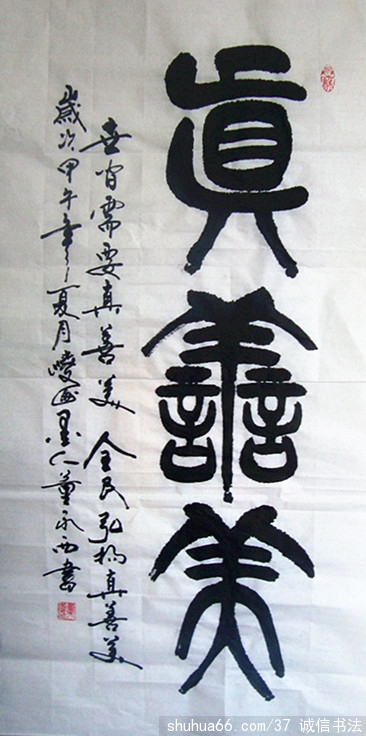 真善美
世间需要真善美 全民弘扬真善美
岁次甲午年夏月 墨人董永西书
shuhua66.com/37 诚信书法